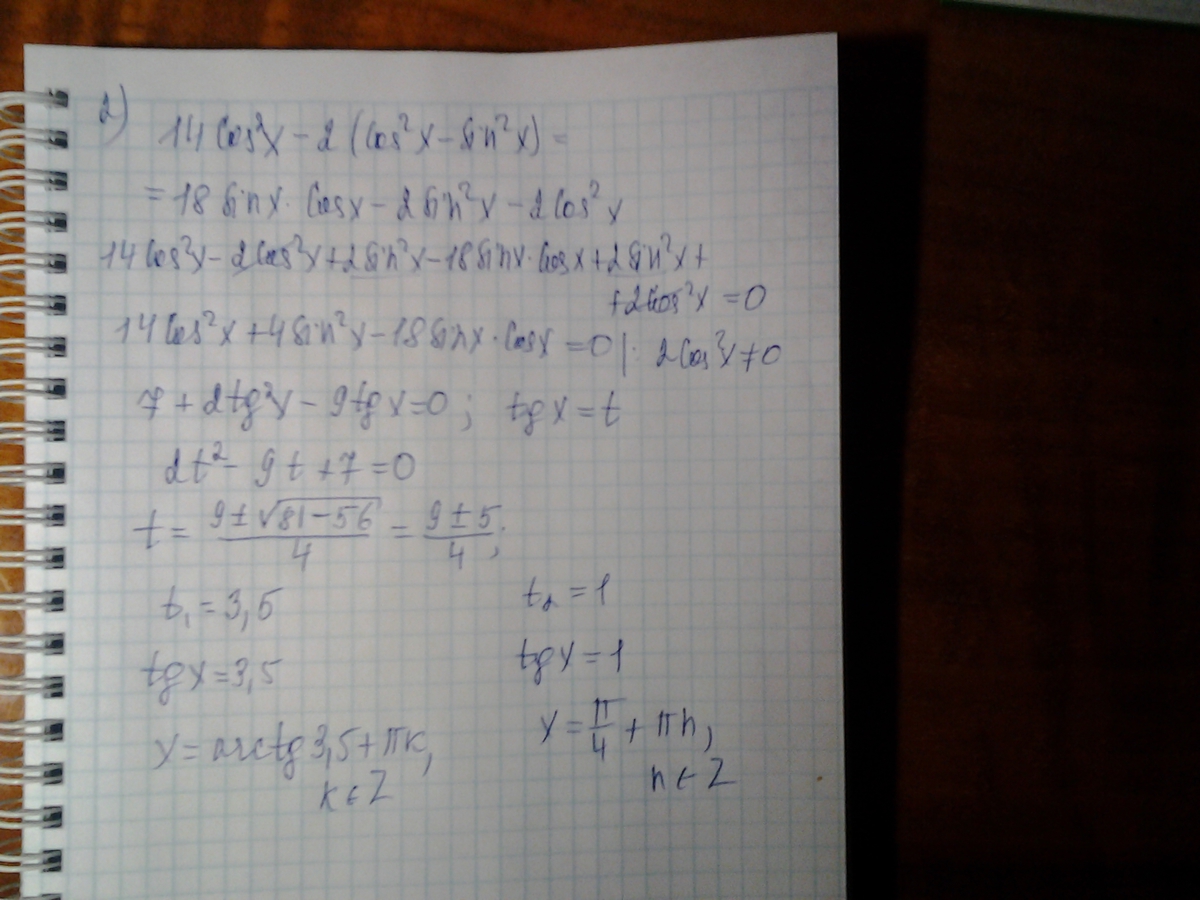 2)
14 cos²x − 2 (cos²x − sin²x) =
= 18 sinx · cosx − 2 sin²x − 2 cos²x
14 cos²x − 2cos²x + 2sin²x − 18 sinx · cosx + 2 sin²x +
+ 2cos²x = 0
14 cos²x + 4 sin²x − 18 sinx · cosx = 0 | : 2 cos²x ≠ 0
7 + 2tg²x − 9tgx = 0 ; tgx = t
2t² − 9t + 7 = 0
t = (9 ± √(81 − 56))/4 = (9 ± 5)/4 ;
t₁ = 3,5 t₂ = 1
tgx = 3,5 tgx = 1
x = arctg 3,5 + πk, x = π/4 + πn,
k ∈ Z n ∈ Z